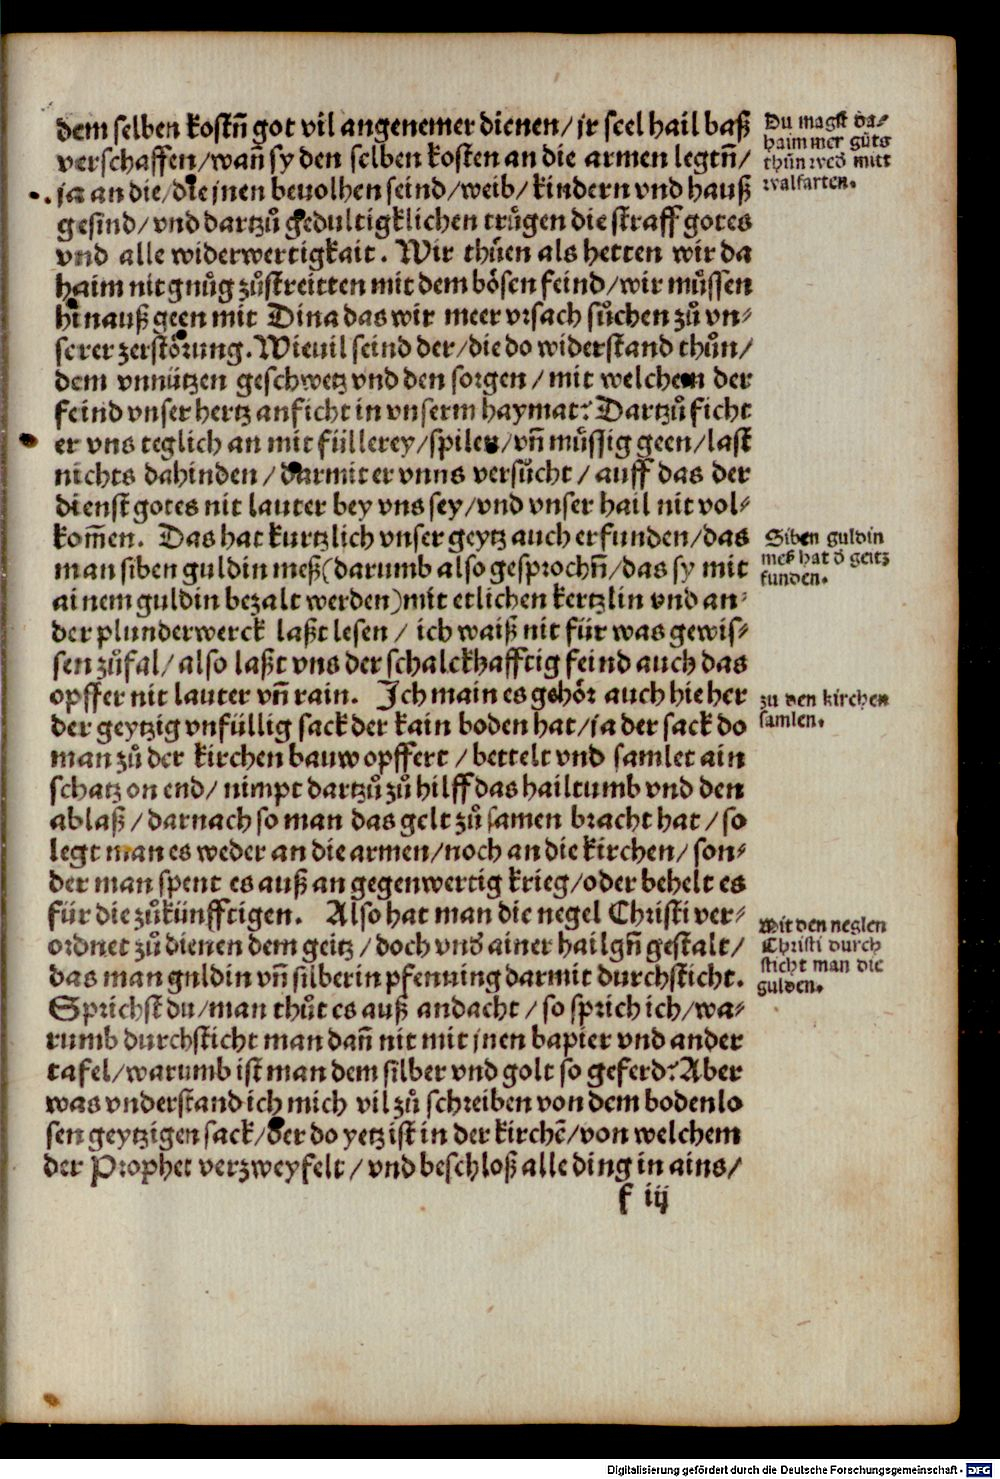 dem selben kostñ got vil angenemer dienen/ jr seel hail baß
verschaffen/wañ sy den selben kosten an die armen legtñ/
ja an die/die jnen beuolhen seind/weib/ kindern vnd hauß
gesind/ vnd dartzuͦ gedultigklichen truͤgen die straff gotes
vnd alle widerwertigkait. Wir thuͤen als hetten wir da
haim nit gnuͦg zuͦstreitten mit dem boͤsen feind/wir muͤssen
hinauß geen mit Dina das wir meer vrsach suͦchen zuͦ vn⸗
serer zerstoͤrung. Wieuil seind der/die do widerstand thuͦn/
dem vnnützen geschwetz vnd den sorgen/ mit welchem der
feind vnser hertz anficht in vnserm haymat? Dartzuͦ ficht
er vns teglich an mit füllerey/spilen/vñ muͤssig geen/last
nichts dahinden/ darmit er vnns versuͦcht/ auff das der
dienst gotes nit lauter bey vns sey/vnd vnser hail nit vol⸗
kom̃en. Das hat kurtzlich vnser geytz auch erfunden/das
man siben guldin meß(darumb also gesprochñ/das sy mit
ainem guldin bezalt werden)mit etlichen kertzlin vnd an⸗
der plunderwerck laßt lesen/ ich waiß nit für was gewis⸗
sen zuͦfal/ also laßt vns der schalckhafftig feind auch das
opffer nit lauter vñ rain. Ich main es gehoͤr auch hie her
der geytzig vnfüllig sack der kain boden hat/ja der sack do
man zuͦ der kirchen bauw opffert/ bettelt vnd samlet ain
schatz on end/ nimpt dartzuͦ zuͦ hilff das hailtumb vnd den
ablaß/ darnach so man das gelt zuͦ samen bracht hat/ so
legt man es weder an die armen/noch an die kirchen/ son⸗
der man spent es auß an gegenwertig krieg/oder behelt es
für die zuͦkünfftigen. Also hat man die negel Christi ver⸗
ordnet zuͦ dienen dem geitz/ doch vnď ainer hailgñ gestalt/
das man guldin vñ silberin pfenning darmit durchsticht.
Sprichst du/man thuͦt es auß andacht/ so sprich ich/wa⸗
rumb durchsticht man dañ nit mit jnen bapier vnd ander
tafel/warumb ist man dem silber vnd golt so geferd? Aber
was vnderstand ich mich vil zuͦ schreiben von dem bodenlo
sen geytzigen sack/der do yetz ist in der kirchẽ/von welchem
der Prophet verzweyfelt/ vnd beschloß alle ding in ains/
f iij
Du magst da⸗
haim mer guͦts
thuͦn weď mitt
walfarten.
Siben guldin
meß hat ď geitz
funden.
zu den kirchen
samlen.
Mit den neglen
Christi durch
sticht man die
gulden.
Digitalisierung gefördert durch die Deutsche Forschungsgemeinschaft - DFG